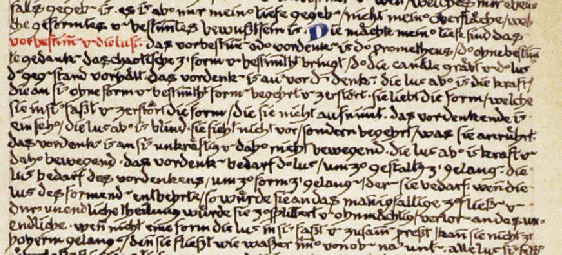 alls gegeb ist. es ist ab nur mein tiefe gegeb / nicht mein oberfläche / wel
che geformtes u bestimtes bewußtsein ist. Die mächte mein tiefe sind das
vorbestim u die lust. das vorbestim od vordenk ist d prometheus / d ohne bestim
te gedank das chaotische z form u bestimth bringt / d die canäle gräbt u d lust
d gegenstand vorhält. das vordenk ist au vor d denk. die lus abo ist die kraft /
die an si ohne form u bestimth form begehrt u zerstört. sie liebt die form / welche
sie in si faßt u zerstört die form / die sie nicht aufnimt. das vordenkende ist
ein seh / die lus abo ist blind. sie sieht nicht vor / sondern begehrt / was sie anrührt.
das vordenk ist an si unkräftig u dah nicht bewegend. die lus abo ist kraft u
dah bewegend. das vordenk bedarf d lus / um z gestalt z gelang. die
lus bedarf des vordenkens / um z form z gelang / der sie bedarf. wen die
lus des formend entbehrte / so würde sie an das manigfaltige z fließ u
dur unendliche theilung würde sie z splittert u ohnmächtig / verlor an das un
endliche. wen nicht eine form die lus in si faßt u zusam preßt kan sie nicht z
höherm gelang / den sie fließt wie waßer im von ob na unt. alle lus